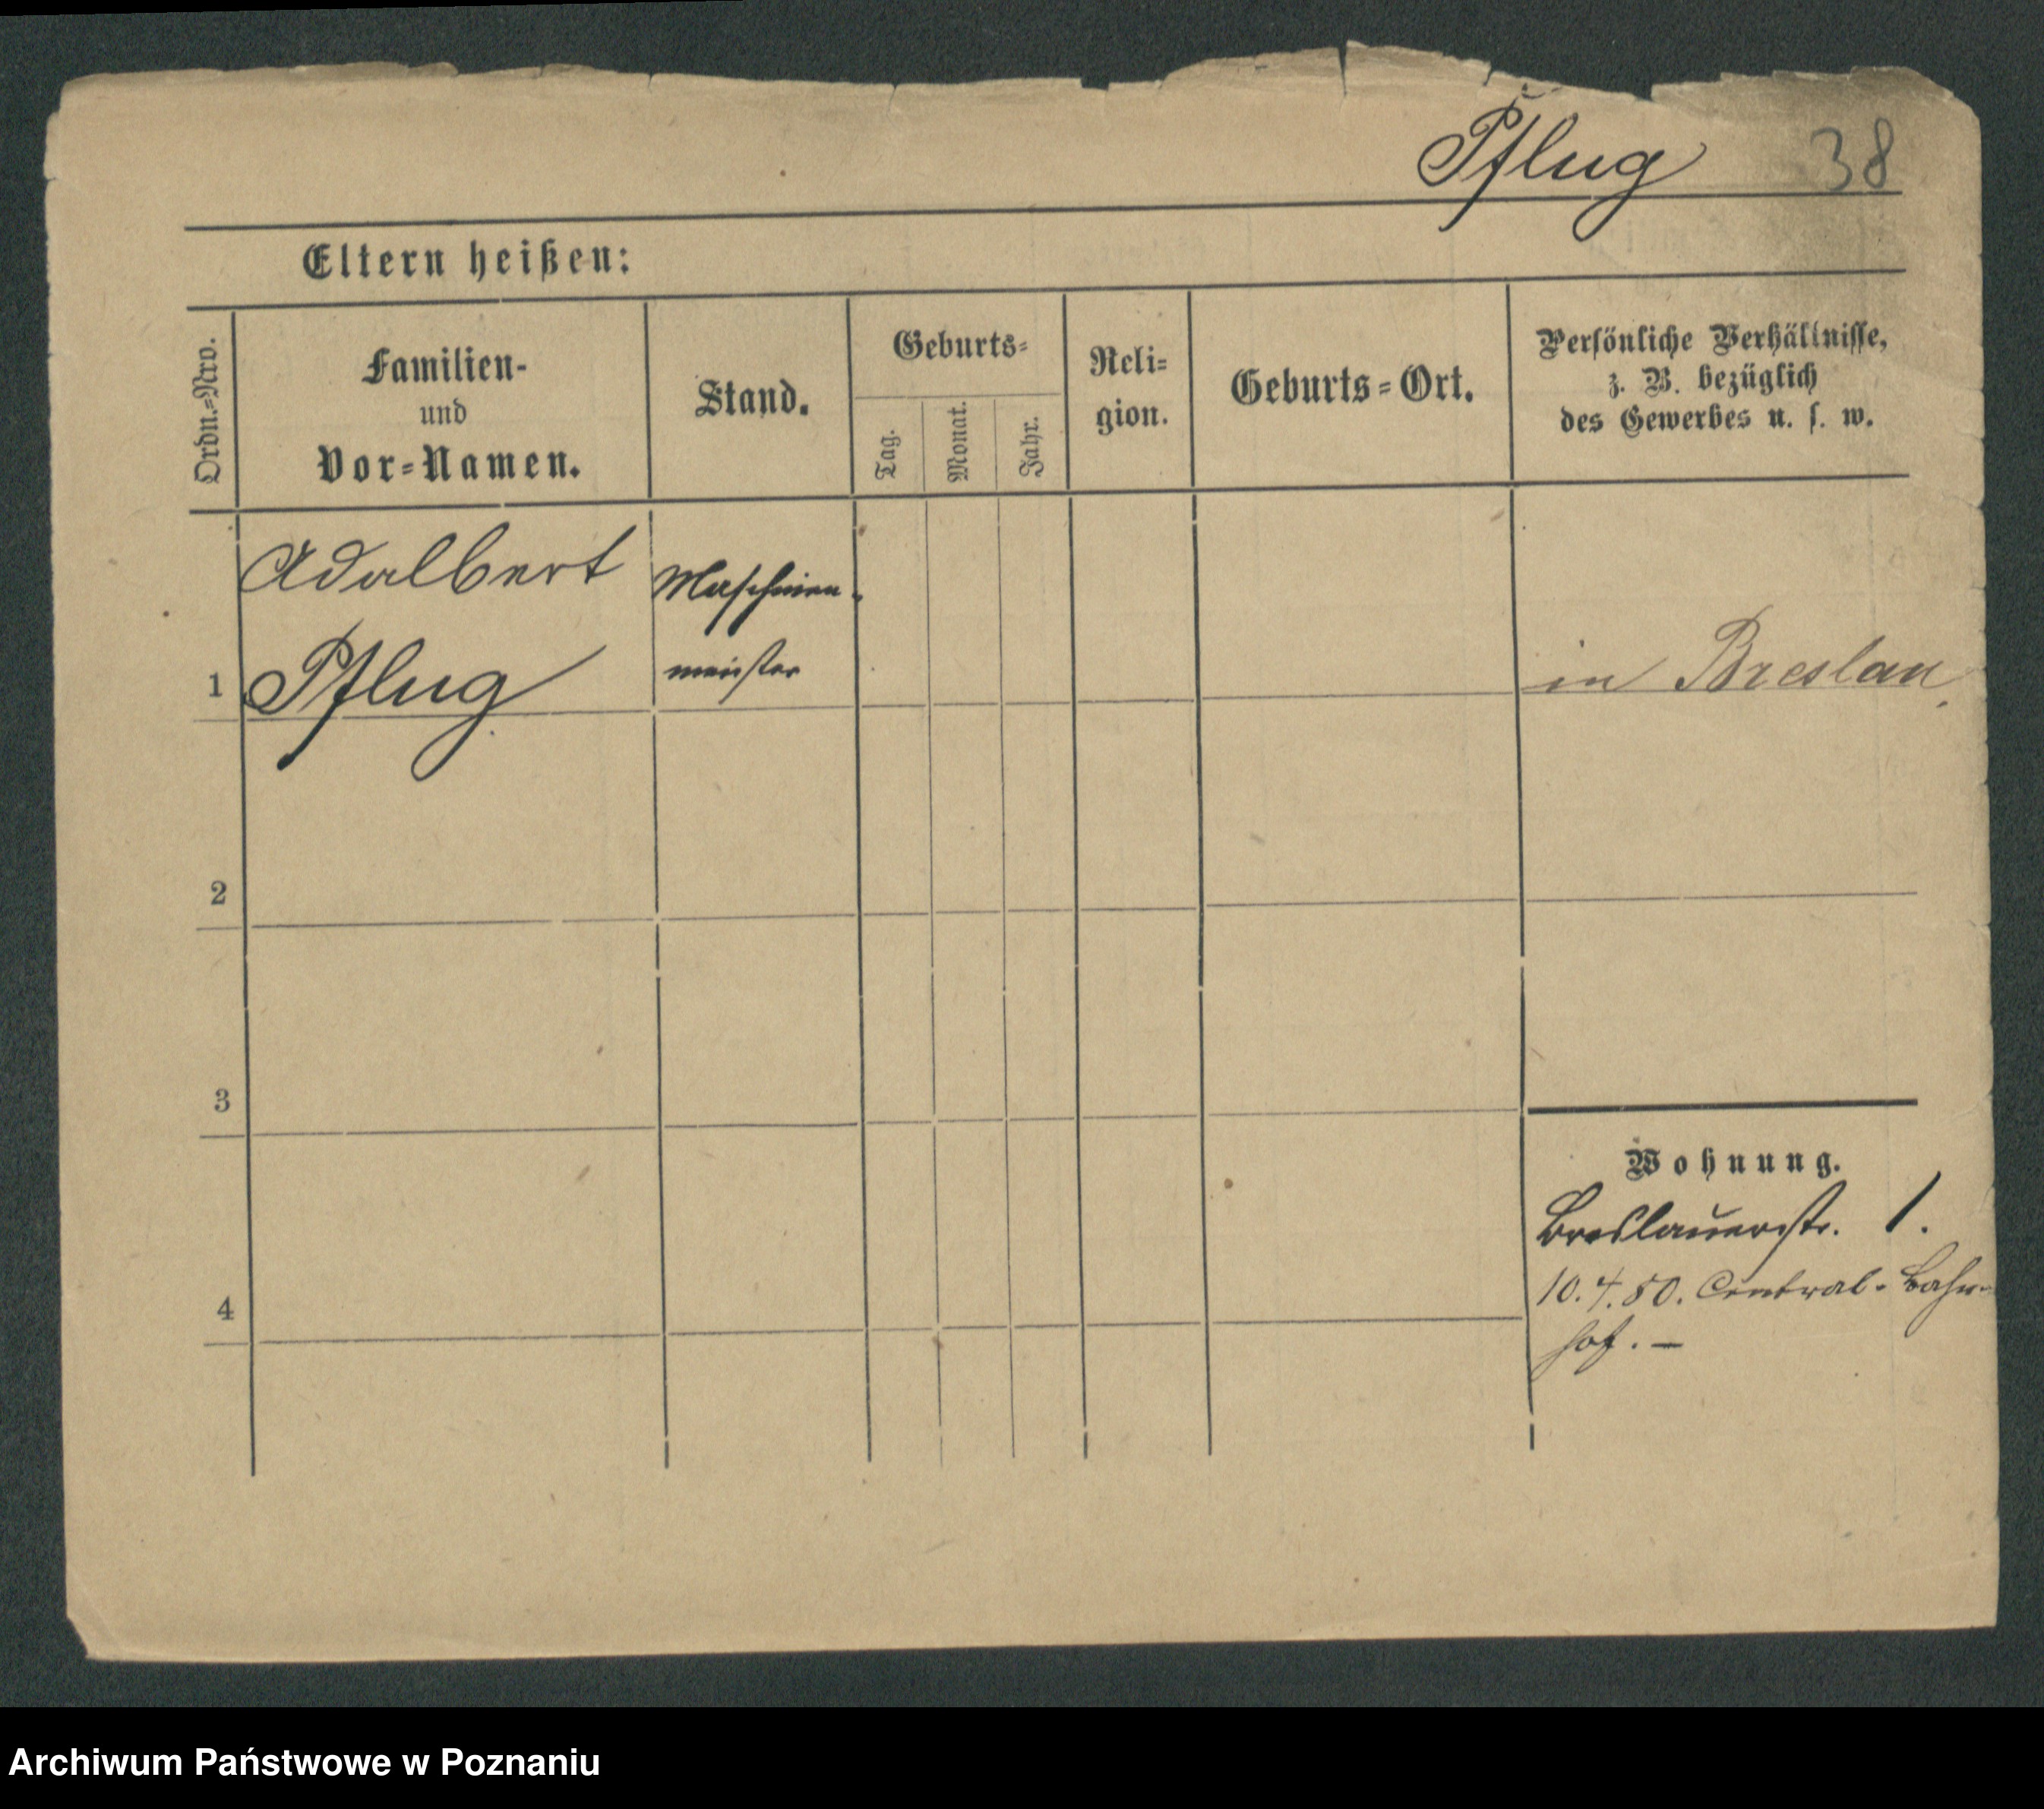 Pflug 38
Eltern heißen:
Ordn.=Nro.
Familien-
und
Vor=Namen.
Stand.
Geburts=
Tag.
Monat.
Jahr.
Reli=
gion.
Geburts=Ort.
Persönliche Verhältnisse,
z. B. bezüglich
des Gewerbes u. s. w.
Adalbert
1 Pflug
Maschinen-
meister
in Breslau
2
3
4
Wohnung.
Breslauerstr. 1.
10.4.80. Central-Bahn-
hof. —
Archiwum Państwowe w Poznaniu